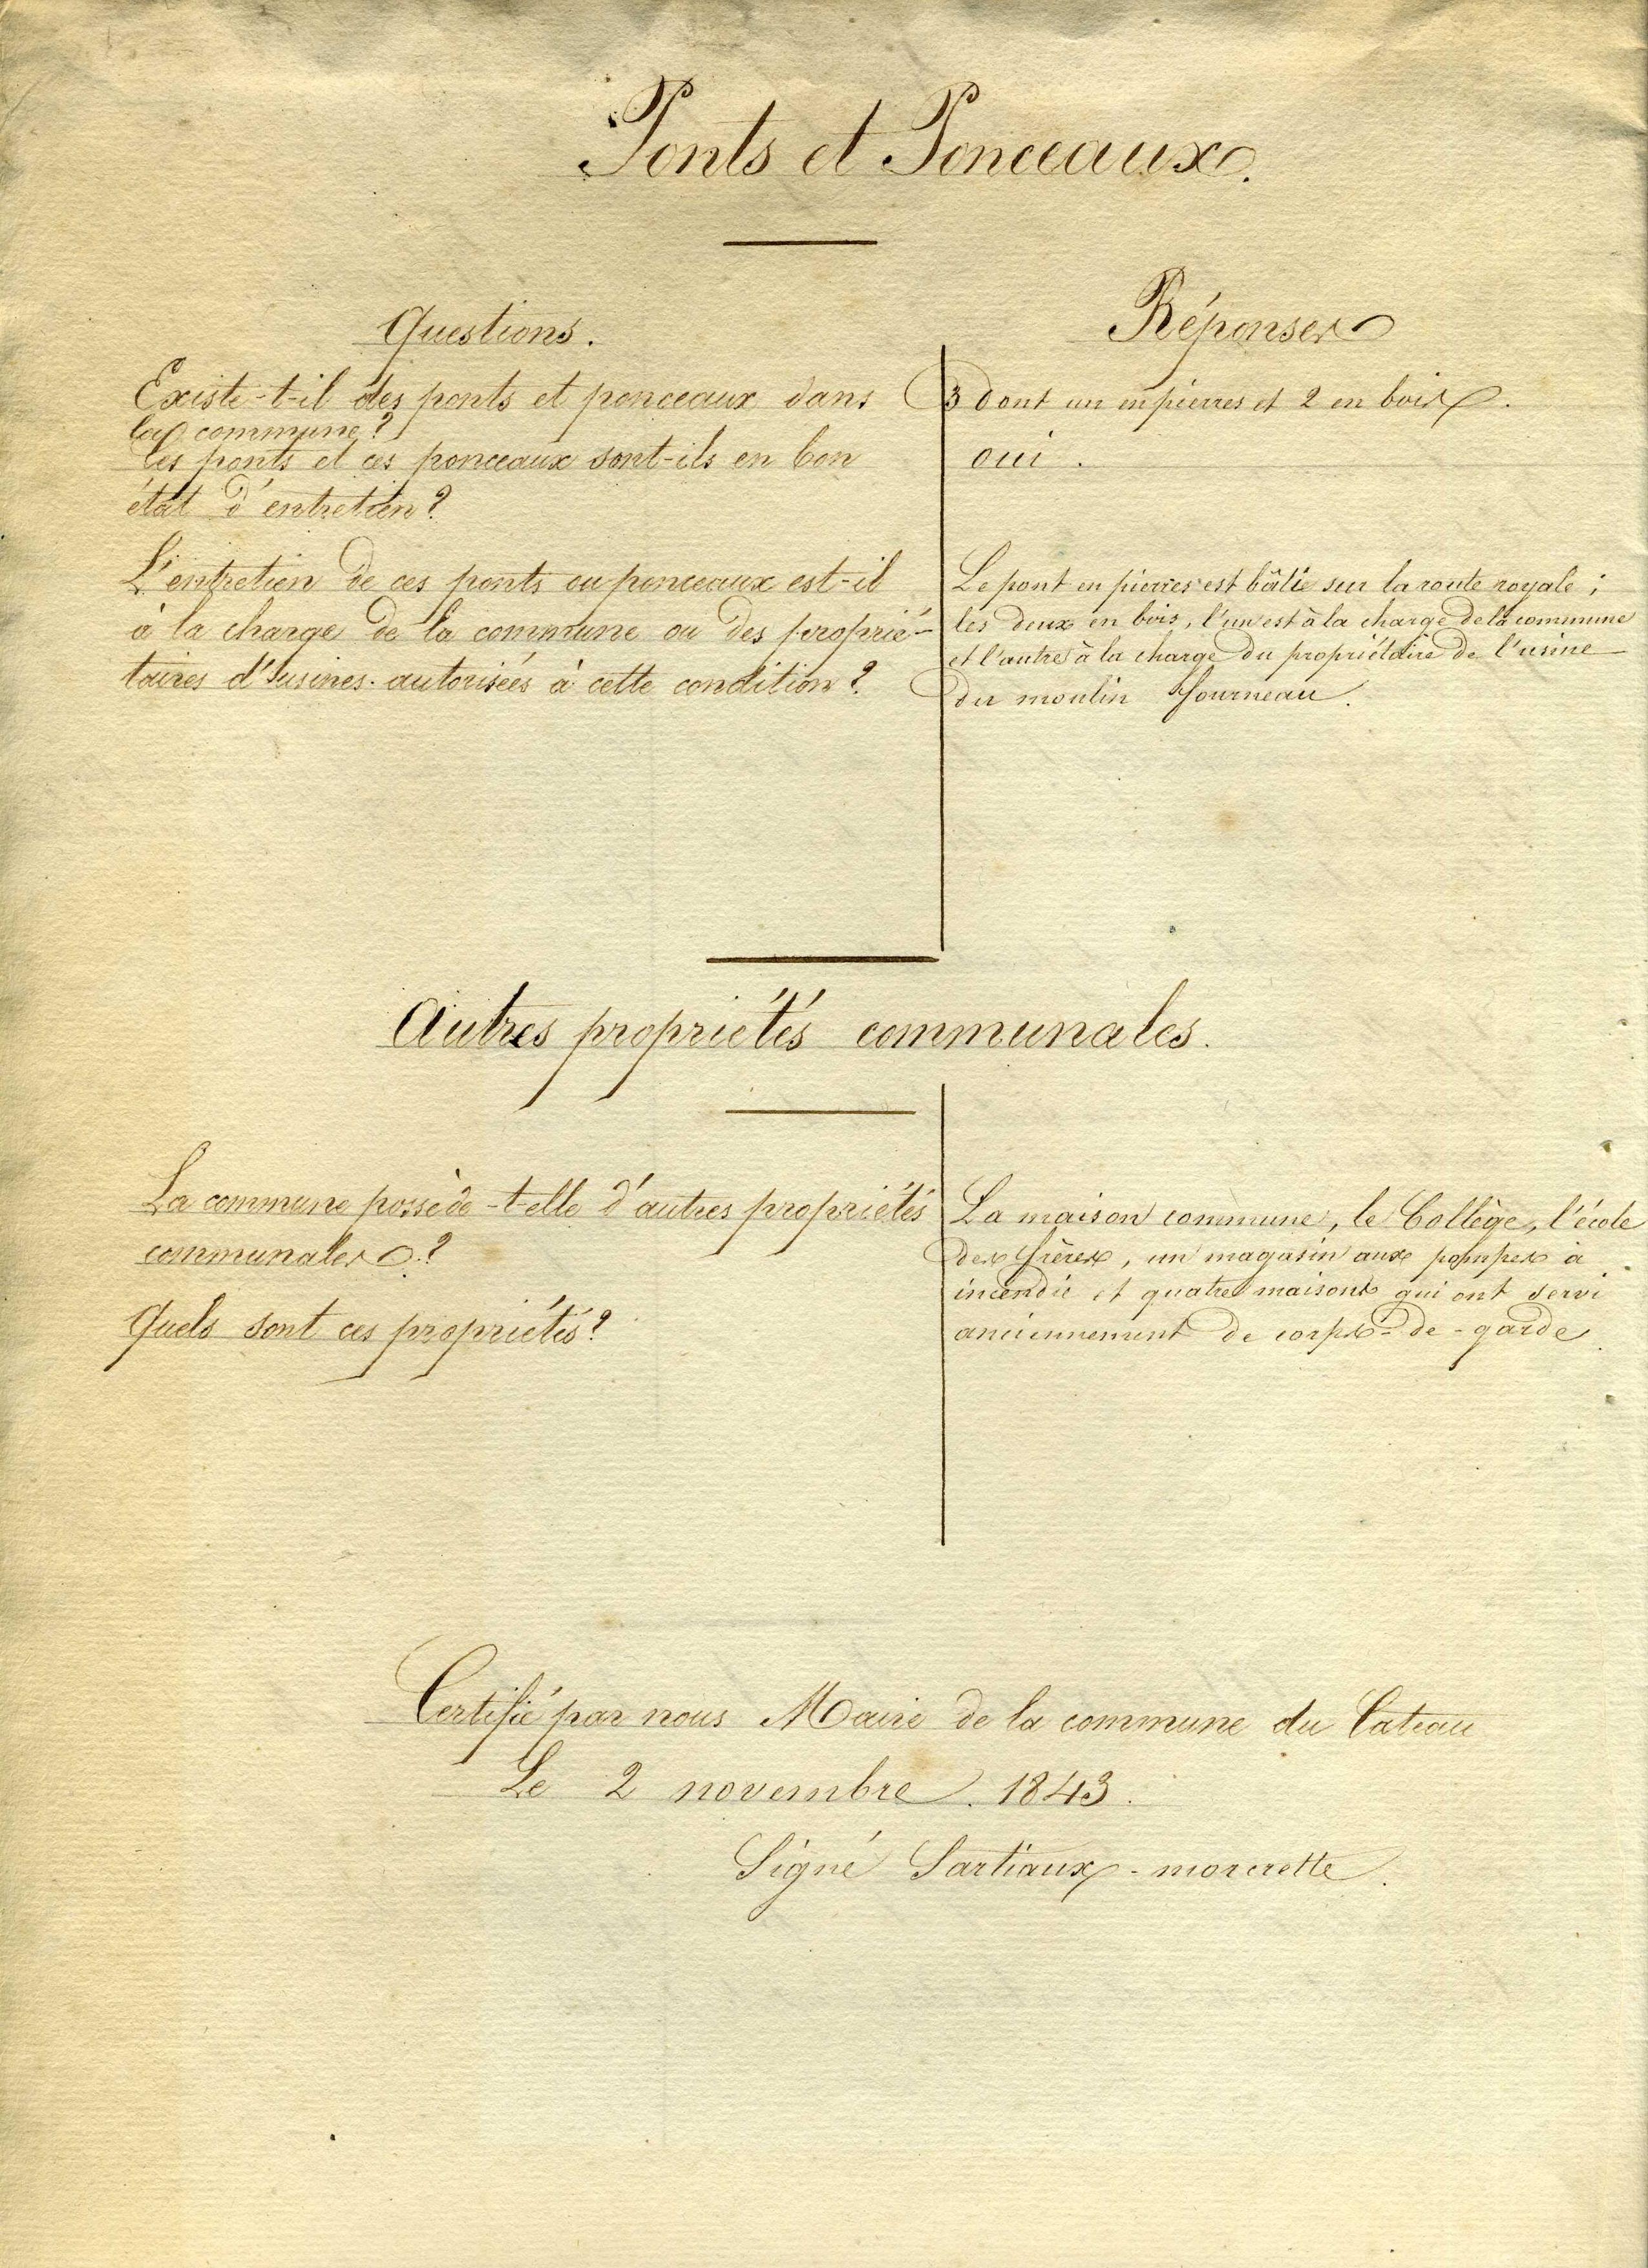 Ponts et Ponceaux.
Questions.
Existe-t-il des ponts et ponceaux dans
la commune ?
Ces ponts et ces ponceaux sont-ils en bon
état d'entretien ?
L'entretien de ces ponts ou ponceaux est-il
à la charge de la commune ou des proprié-
taires d'usines autorisées à cette condition ?
Réponses
3 dont un en pierres et 2 en bois.
oui.
Le pont en pierres est bâtie sur la route royale ;
les deux en bois, l'un est à la charge de la commune
et l'autre à la charge du propriétaire de l'usine
du moulin fourneau.
Autres propriétés communales.
La commune possède-t-elle d'autres propriétés
communales ?
Quels sont ces propriétés ?
La maison commune, le Collège, l'école
des frères, un magasin aux pompes à
incendie et quatre maisons qui ont servi
anciennement de corps-de-garde.
Certifié par nous Maire de la commune du Cateau
Le 2 novembre. 1843.
Signé Sartiaux-morcrette.